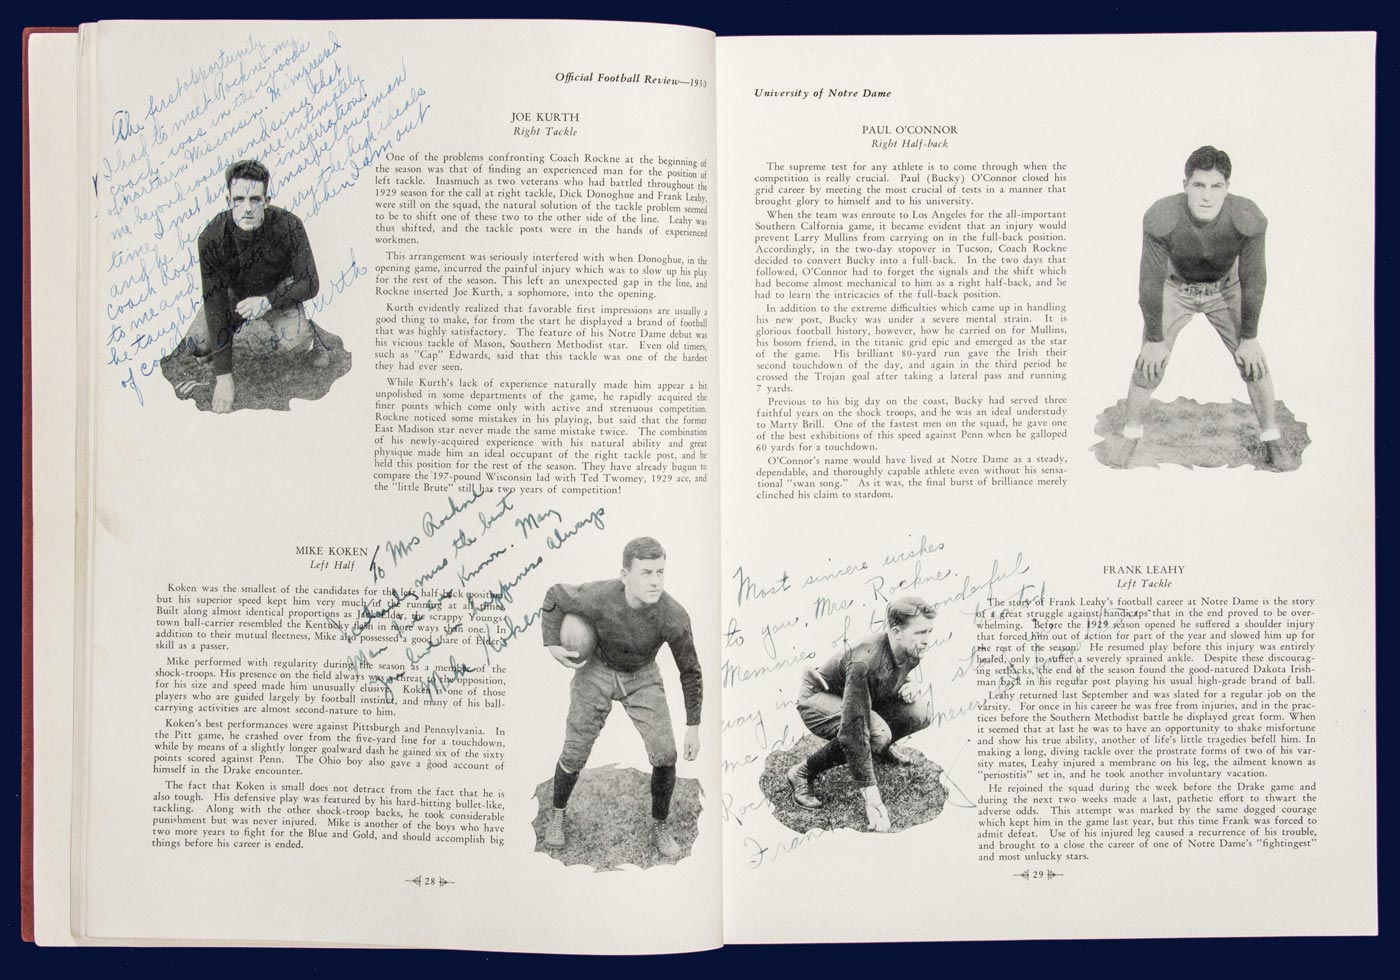 Official Football Review—1930
JOE KURTH
Right Tackle
The first opportunity
I had to meet Rockne my
coach - was in the woods
of northern Wisconsin. He impressed
me beyond words and since that
time I met him more intimately
and he became an inspiration.
coach Rockne marvelous man
to me and
he taught me carry the high ideals
of college when I am out
Joe Kurth
One of the problems confronting Coach Rockne at the beginning of
the season was that of finding an experienced man for the position of
left tackle. Inasmuch as two veterans who had battled throughout the
1929 season for the call at right tackle, Dick Donoghue and Frank Leahy,
were still on the squad, the natural solution of the tackle problem seemed
to be to shift one of these two to the other side of the line. Leahy was
thus shifted, and the tackle posts were in the hands of experienced
workmen.
This arrangement was seriously interfered with when Donoghue, in the
opening game, incurred the painful injury which was to slow up his play
for the rest of the season. This left an unexpected gap in the line, and
Rockne inserted Joe Kurth, a sophomore, into the opening.
Kurth evidently realized that favorable first impressions are usually a
good thing to make, for from the start he displayed a brand of football
that was highly satisfactory. The feature of his Notre Dame debut was
his vicious tackle of Mason, Southern Methodist star. Even old timers,
such as "Cap" Edwards, said that this tackle was one of the hardest
they had ever seen.
While Kurth's lack of experience naturally made him appear a bit
unpolished in some departments of the game, he rapidly acquired the
finer points which come only with active and strenuous competition.
Rockne noticed some mistakes in his playing, but said that the former
East Madison star never made the same mistake twice. The combination
of his newly-acquired experience with his natural ability and great
physique made him an ideal occupant of the right tackle post, and he
held this position for the rest of the season. They have already bugun to
compare the 197-pound Wisconsin lad with Ted Twomey, 1929 ace, and
the "little Brute" still has two years of competition!
MIKE KOKEN
Left Half
To Mrs Rockne
miss the best
Man Known. Many
happiness always
Mike Koken
Koken was the smallest of the candidates for the left half-back position
but his superior speed kept him very much in the running at all times.
Built along almost identical proportions as Jack Elder, the scrappy Youngs-
town ball-carrier resembled the Kentucky flash in more ways than one. In
addition to their mutual fleetness, Mike also possessed a good share of Elder's
skill as a passer.
Mike performed with regularity during the season as a member of the
shock-troops. His presence on the field always was a threat to the opposition,
for his size and speed made him unusually elusive. Koken is one of those
players who are guided largely by football instinct, and many of his ball-
carrying activities are almost second-nature to him.
Koken's best performances were against Pittsburgh and Pennsylvania. In
the Pitt game, he crashed over from the five-yard line for a touchdown,
while by means of a slightly longer goalward dash he gained six of the sixty
points scored against Penn. The Ohio boy also gave a good account of
himself in the Drake encounter.
The fact that Koken is small does not detract from the fact that he is
also tough. His defensive play was featured by his hard-hitting bullet-like,
tackling. Along with the other shock-troop backs, he took considerable
punishment but was never injured. Mike is another of the boys who have
two more years to fight for the Blue and Gold, and should accomplish big
things before his career is ended.
28
University of Notre Dame
PAUL O'CONNOR
Right Half-back
The supreme test for any athlete is to come through when the
competition is really crucial. Paul (Bucky) O'Connor closed his
grid career by meeting the most crucial of tests in a manner that
brought glory to himself and to his university.
When the team was enroute to Los Angeles for the all-important
Southern Calfornia game, it became evident that an injury would
prevent Larry Mullins from carrying on in the full-back position.
Accordingly, in the two-day stopover in Tucson, Coach Rockne
decided to convert Bucky into a full-back. In the two days that
followed, O'Connor had to forget the signals and the shift which
had become almost mechanical to him as a right half-back, and he
had to learn the intricacies of the full-back position.
In addition to the extreme difficulties which came up in handling
his new post, Bucky was under a severe mental strain. It is
glorious football history, however, how he carried on for Mullins,
his bosom friend, in the titanic grid epic and emerged as the star
of the game. His brilliant 80-yard run gave the Irish their
second touchdown of the day, and again in the third period he
crossed the Trojan goal after taking a lateral pass and running
7 yards.
Previous to his big day on the coast, Bucky had served three
faithful years on the shock troops, and he was an ideal understudy
to Marty Brill. One of the fastest men on the squad, he gave one
of the best exhibitions of this speed against Penn when he galloped
60 yards for a touchdown.
O'Connor's name would have lived at Notre Dame as a steady,
dependable, and thoroughly capable athlete even without his sensa-
tional "swan song." As it was, the final burst of brilliance merely
clinched his claim to stardom.
Most sincere wishes
to you, Mrs. Rockne.
Memories of the wonderful
way in you treated
me shall never
Rock
Frank
FRANK LEAHY
Left Tackle
The story of Frank Leahy's football career at Notre Dame is the story
of a great struggle against handicaps that in the end proved to be over-
whelming. Before the 1929 season opened he suffered a shoulder injury
that forced him out of action for part of the year and slowed him up for
the rest of the season. He resumed play before this injury was entirely
healed, only to suffer a severely sprained ankle. Despite these discourag-
ing setbacks, the end of the season found the good-natured Dakota Irish-
man back in his regular post playing his usual high-grade brand of ball.
Leahy returned last September and was slated for a regular job on the
varsity. For once in his career he was free from injuries, and in the prac-
tices before the Southern Methodist battle he displayed great form. When
it seemed that at last he was to have an opportunity to shake misfortune
and show his true ability, another of life's little tragedies befell him. In
making a long, diving tackle over the prostrate forms of two of his var-
sity mates, Leahy injured a membrane on his leg, the ailment known as
"periostitis" set in, and he took another involuntary vacation.
He rejoined the squad during the week before the Drake game and
during the next two weeks made a last, pathetic effort to thwart the
adverse odds. This attempt was marked by the same dogged courage
which kept him in the game last year, but this time Frank was forced to
admit defeat. Use of his injured leg caused a recurrence of his trouble,
and brought to a close the career of one of Notre Dame's "fightingest"
and most unlucky stars.
29